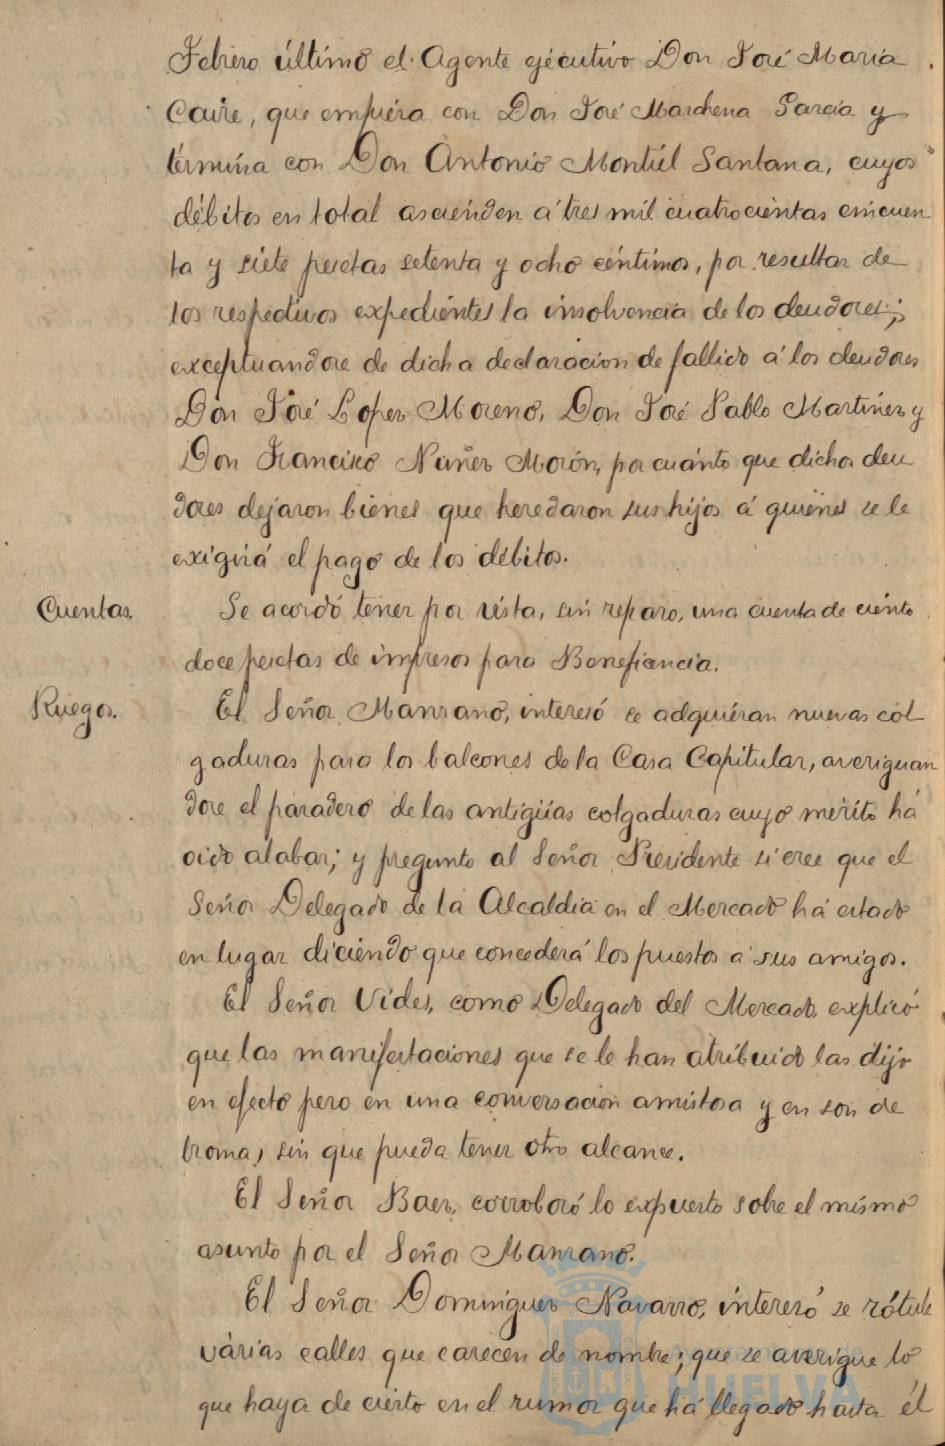 Febrero último el Agente ejecutivo Don José María
Caire, que empiéza con Don José Marchena García y
términa con Don Antonio Montiél Santana, cuyos
débitos en total ascienden á tres mil cuatrocientas cincuen
ta y siéte pesetas setenta y ocho céntimos, por resultar de
los respectivos expedientes la insolvencia de los deudores;
exceptuandose de dicha declaración de fallido á los deudores
Don José Lopez Moreno, Don José Pablo Martínez y
Don Francisco Nuñez Morón, por cuánto que dichos deu
dores dejaron bienes que heredaron sus hijos á quiénes se le
exigirá el pago de los débitos.
Cuentas. Se acordó tener por vista, sin reparo, una cuenta de ciénto
doce pesetas de impresos para Beneficencia.
Ruegos. El Señor Manzano, interesó se adquiéran nuevas col
gaduras para los balcones de la Casa Capitular, averiguan
dose el paradero de las antigüas colgaduras cuyo mérito há
oido alabar; y pregunto al Señor Presidente si cree que el
Señor Delegado de la Alcaldía en el Mercado há estado
en lugar diciéndo que concederá los puestos á sus amigos.
El Señor Vides, como Delegado del Mercado, explicó
que las manifestaciones que se le han atribuido las dijo
en efecto pero en una conversacion amistosa y en son de
broma, sin que pueda tener otro alcance.
El Señor Baez, corroboró lo expuesto sobre el mismo
asunto por el Señor Manzano.
El Señor Dominguez Navarro, interesó se rótule
várias calles que carecen de nombre; que se averigue lo
que haya de ciérto en el rumor que há llegado hasta él
HUELVA